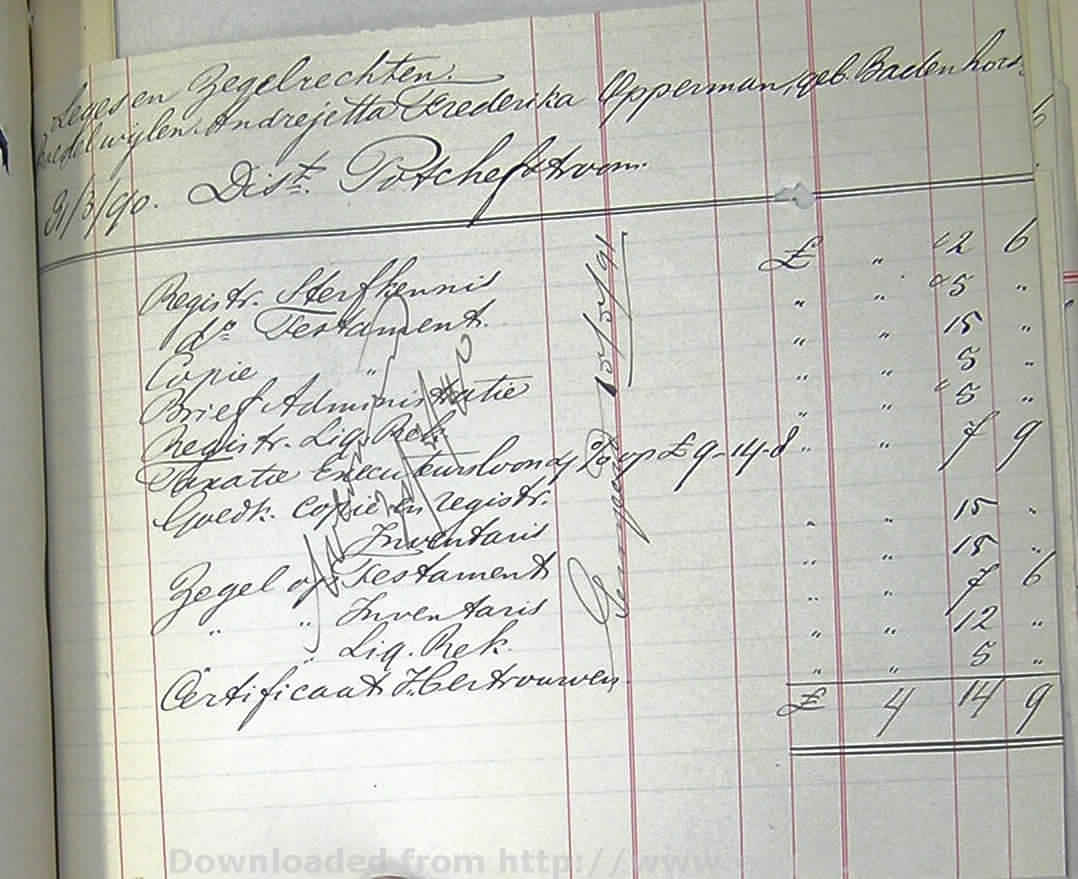 Leges en Zegelrechten.
Boedel wijlen Andrejetta Frederika Opperman, geb. Badenhors
21/3/90. Dist. Potchefstroom.
Registr. Sterfkennis £ " 2 6
do Testament. " " 5 "
Copie " " " 15 "
Brief Administratie " " 5 "
Registr. Liq. Rek. " " 5 "
Taxatie Executeursloon op £9-14-8 " " 7 9
Goedk. Copie en registr.
Inventaris " " 15 "
Zegel op Testament " " 15 "
" " Inventaris " " 7 6
" Liq. Rek. " " 12 "
Certificaat " " 5 "
£ 4 14 9
15/5/91
Downloaded from http://www